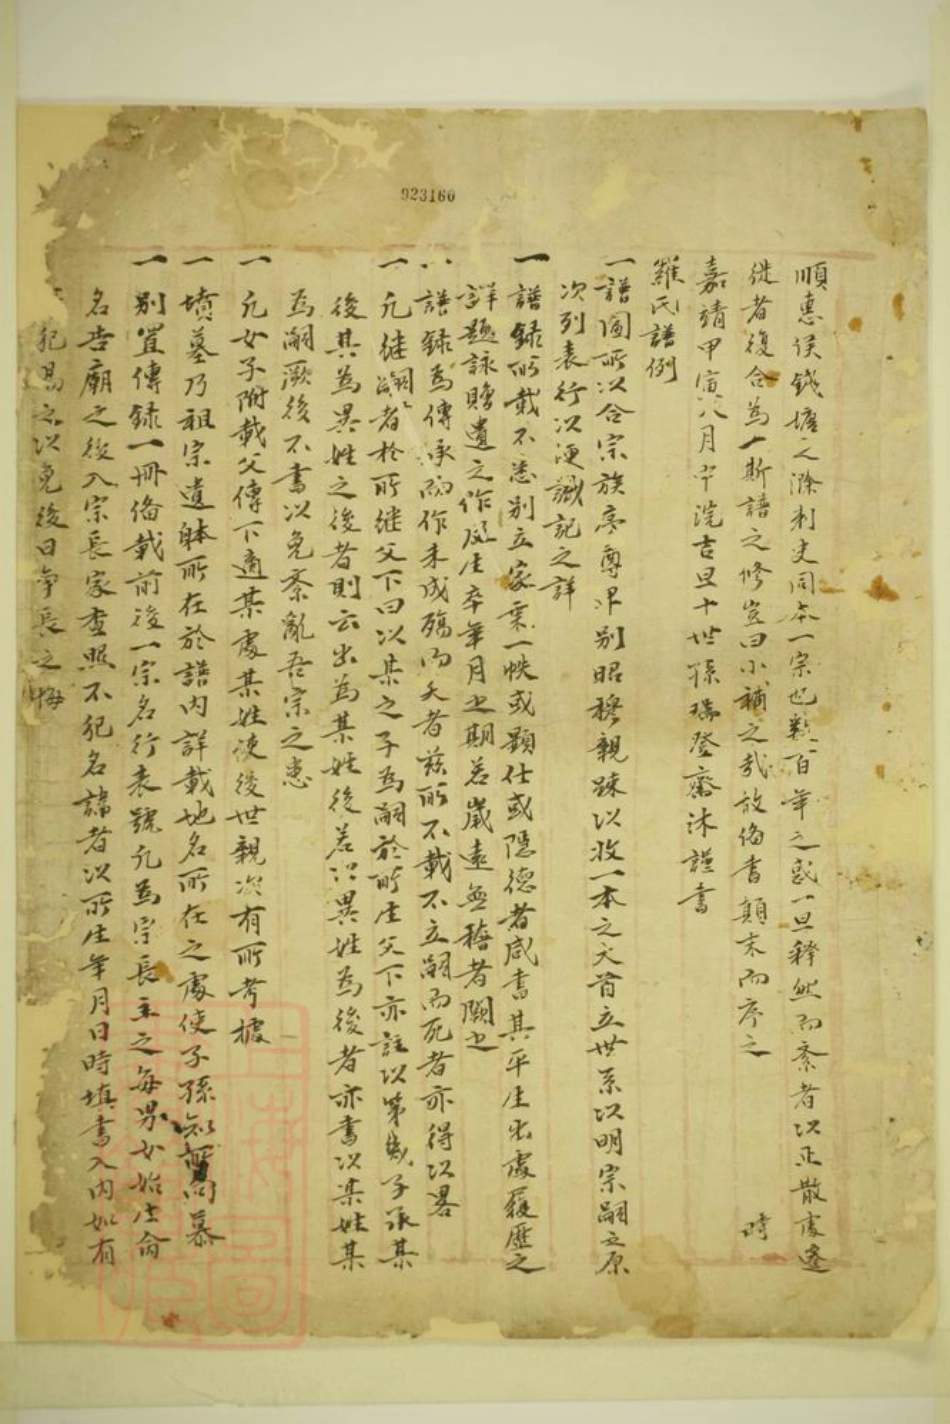 923160
順惠侯錢塘之滁刺史同本一宗也數百年之惑一旦釋然而紊者以正散處遷
徙者復合為一斯譜之修豈曰小補之哉故備書顛末而序之 時
嘉靖甲寅八月中浣吉旦十世孫瑞登齋沐謹書
羅氏譜例
一譜圖所以合宗族序尊卑别昭穆親踈以收一本之夭首立世系以明宗嗣之原
次列表行以便識記之詳
一譜録所載不悉别立家乘一帙或顯仕或隱德者咸書其平生出處履歷之
詳題詠贈遺之作及生卒年月之期若歲遠無稽者闕之
一譜録為傳承而作未成殤而夭者茲所不載不立嗣而死者亦得以畧
一凡継嗣者於所継父下曰以某之子為嗣於所生父下亦註以第幾子承某
後其為異姓之後者則云出為某姓後若以異姓為後者亦書以某姓某
為嗣厥後不書以免紊亂吾宗之患
一凡女子附載父傳下適某處某姓使後世親次有所考據
一墳墓乃祖宗遺躰所在於譜内詳載地名所在之處使子孫知所向慕
一别置傳録一冊备載前後一宗名行表號凡為宗長主之每男女始生命
名告廟之後入宗長家查照不犯名諱者以所生年月日時填書入内如有
犯易之以免後日争長之悔